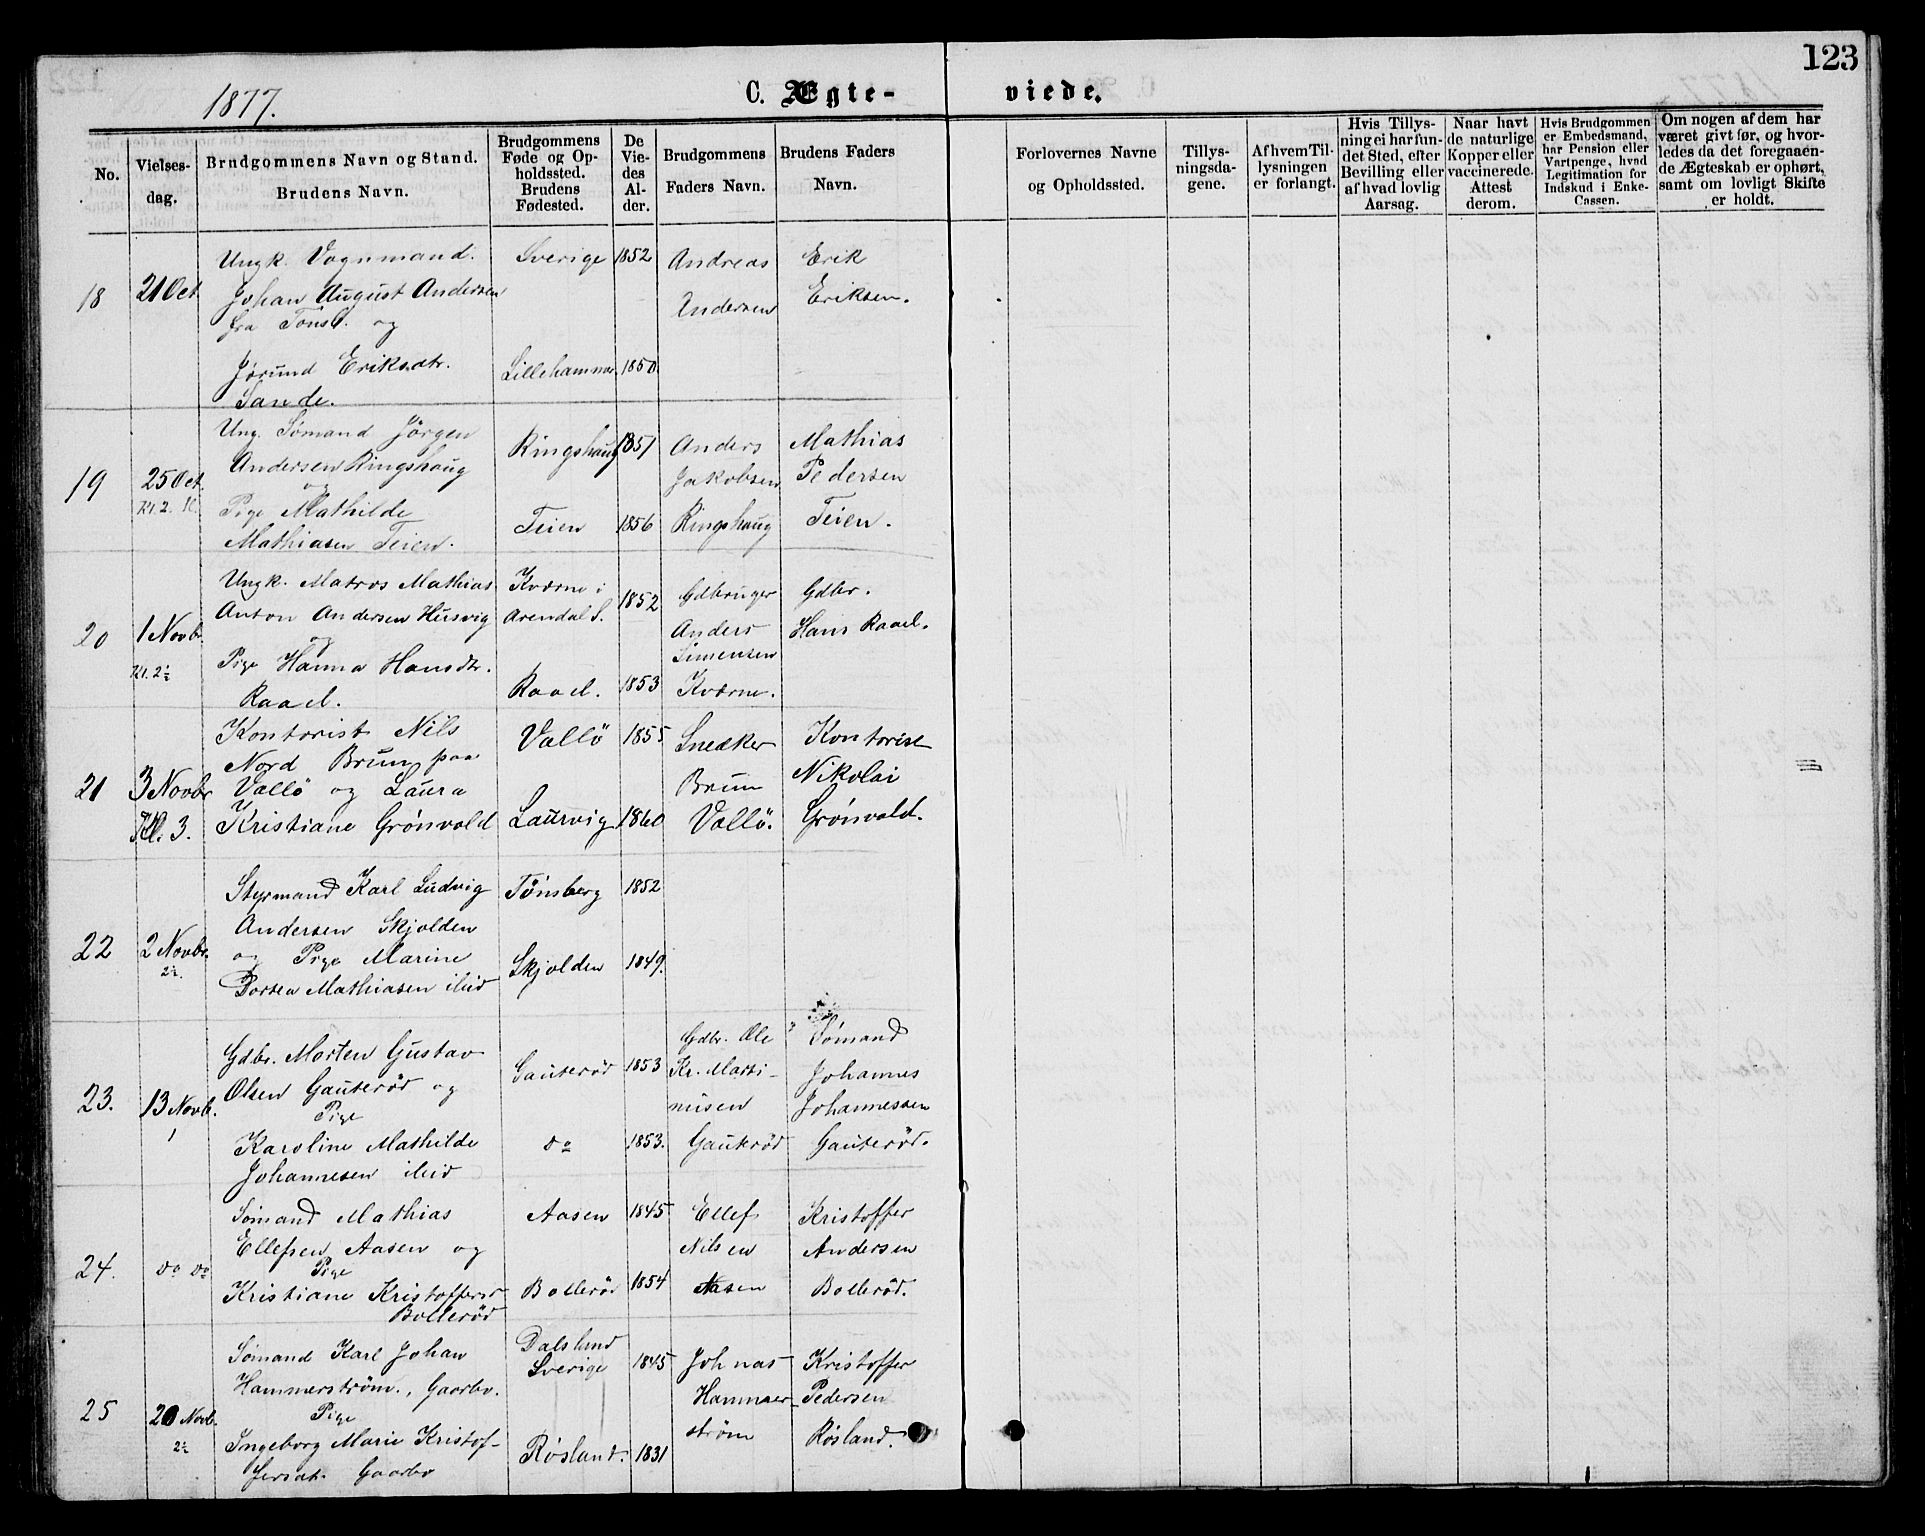 123
1877.
C. Ægte- viede.
No.
Vielses-
dag.
Brudgommens Navn og Stand.
Brudens Navn.
Brudgommens
Føde og Op-
holdssted.
Brudens
Fødested.
De
Vie-
des
Al-
der.
Brudgommens
Faders Navn.
Brudens Faders
Navn.
Forlovernes Navne
og Opholdssted.
Tillys-
ningsda-
gene.
Af hvem Til-
lysningen
er forlangt.
Hvis Tillys-
ning ei har fun-
det Sted, efter
Bevilling eller
af hvad lovlig
Aarsag.
Naar havt
de naturlige
Kopper eller
vaccinerede.
Attest
derom.
Hvis Brudgommen
er Embedsmand,
har Pension eller
Vartpenge, hvad
Legitimation for
Indskud i Enke-
Cassen.
Om nogen af dem har
været givt før, og hvor-
ledes da det foregaaen-
de Ægteskab er ophørt,
samt om lovligt Skifte
er holdt.
18
21 Oct
Ungk. Vognmand.
Johan August Andersen
fra Tönsb. og
Jørund Eriksdtr.
Sande.
Sverige
Lillehammer
1852
1850
Andreas
Andersen
Erik
Eriksen.
19
25 Oct.
Kl. 2.
Ung. Sömand Jörgen
Andersen Ringshaug
og
Pige Mathilde
Mathiasen Teien.
Ringshaug
Teien
1851
1856
Anders
Jakobsen
Ringshaug
Mathias
Pedersen
Teien.
20
1 Novbr.
Kl. 2½
Ungk. Matros Mathias
Anton Andersen Husvig
og
Pige Hanna Hansdtr.
Raael.
Kværne i
Arendal S.
Raael.
1852
1853
Gdbruger
Anders
Simensen
Kværne.
Gdbr.
Hans Raael.
21
3 Novbr
Kl. 3.
Kontorist Nils
Nord Brun paa
Vallö og Laura
Kristiane Grönvold
Vallö
Laurvig
1855
1860
Snedker
Brun
Vallö.
Kontorist
Nikolai
Grönvold.
22
2 Novbr.
2½.
Styrmand Karl Ludvig
Andersen Skjolden
og Pige Marine
Dorsea Mathiasen ibid
Tönsberg
Skjolden
1852
1849.
23.
13 Novb.
1
Gdbr. Morten Gustav
Olsen Gauterød og
Pige
Karoline Mathilde
Johannesen ibid
Gauterød
do
1853
1853.
Gdbr. Ole
Kr. Marti-
nusen
Gauterød
Sömand
Johannes
Johannessen
Gauterød.
24.
do do
Sömand Mathias
Ellefsen Aasen og
Pige
Kristiane Kristoffersd
Bollerød
Aasen
Bollerød
1845
1854
Ellef
Nilsen
Aasen
Kristoffer
Andersen
Bollerød.
25
20 Novb.
2½
Sömand Karl Johan
Hammerström, Gaarbo.
Pige
Ingeborg Marie Kristof-
fersdt. Gaarbo
Dalsland
Sverige
Røsland.
1845
1831
Johnas
Hammer-
ström
Kristoffer
Pedersen
Røsland.